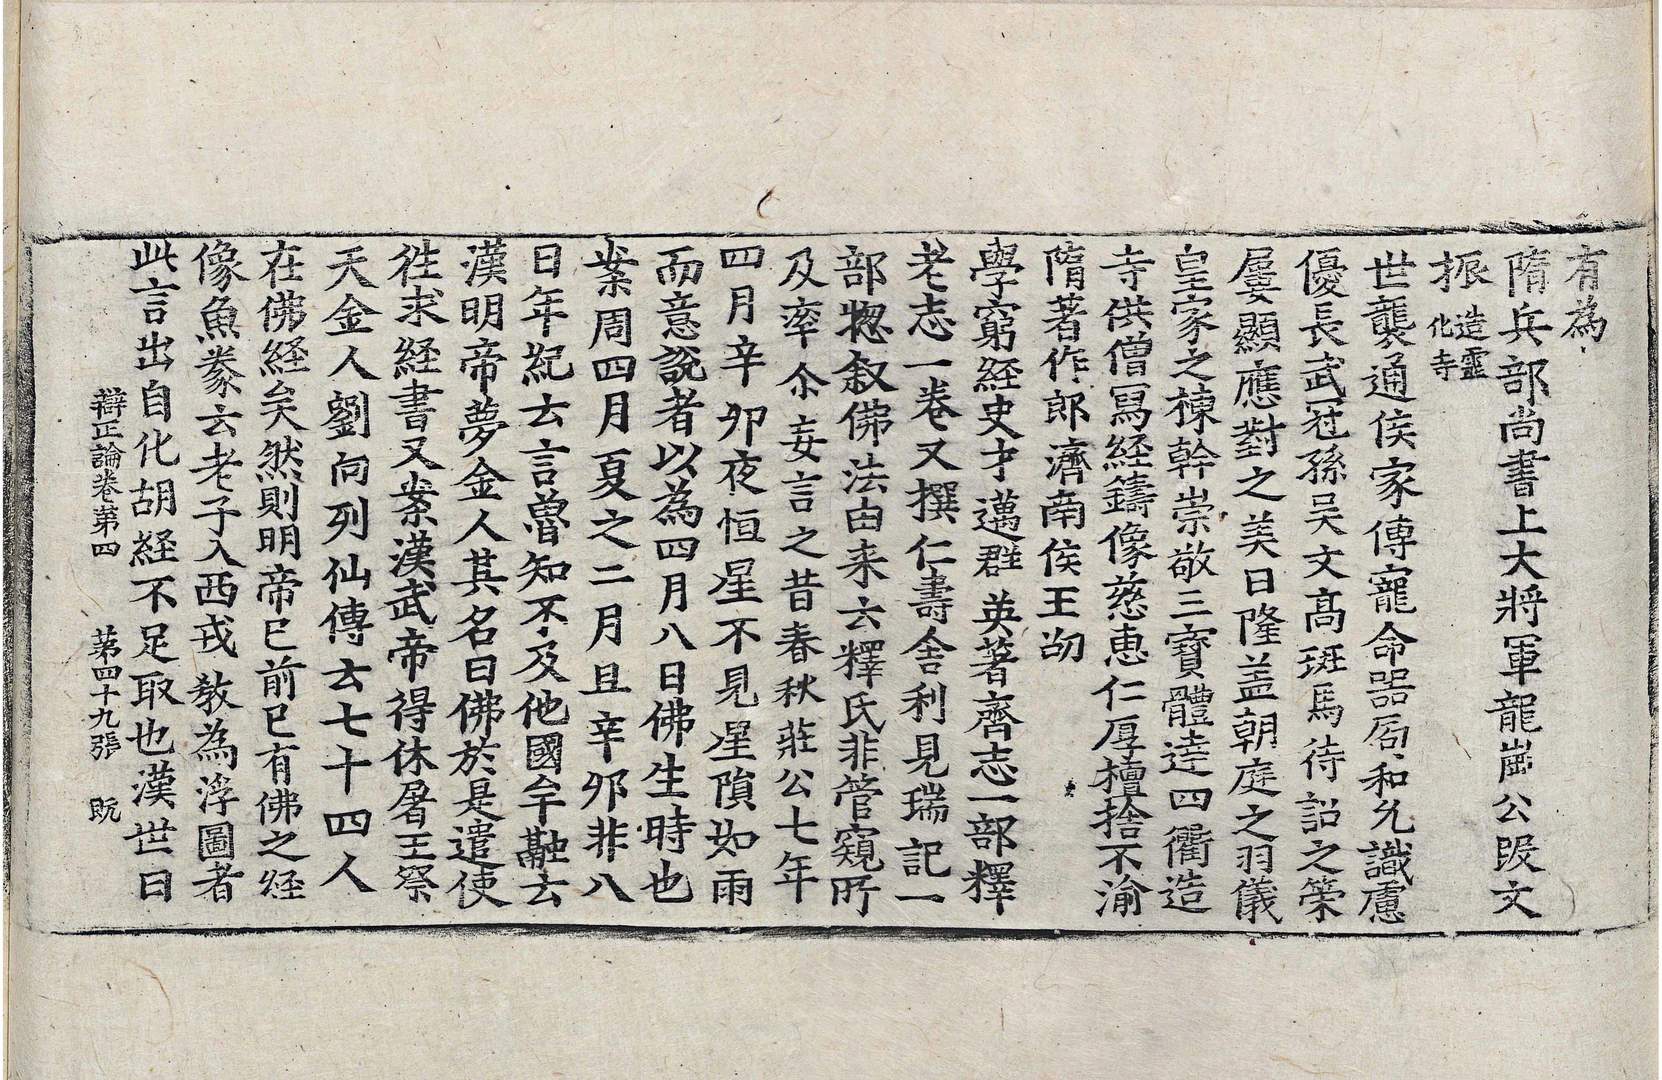 有為
隋兵部尚書上大將軍龍崗公段文
振造靈化寺
世襲通侯家傳寵命器局和允識慮
優長武冠孫吳文高班馬待詔之策
屢顯應對之美日隆盖朝庭之羽儀
皇家之棟幹崇敬三寶體達四衢造
寺供僧寫經鑄像慈惠仁厚檀捨不渝
隋著作郎濟南侯王劭
學窮經史才邁群英著齊志一部釋
老志一卷又撰仁壽舍利見瑞記一
部惣叙佛法由来六釋氏非管窺所
及率尒妄言之昔春秋莊公七年
四月辛夘夜恒星不見星隕如雨
而意說者以為四月八日佛生時也
案周四月夏之二月且辛夘非八
日年紀去言曾知不及他國牟融云
漢明帝夢金人其名曰佛於是遣使
往求経書又案漢武帝得休屠王祭
天金人劉向列仙傳云七十四人
在佛経矣然則明帝已前已有佛之経
像魚豢云老子入西戎教為浮圖者
此言出自化胡経不足取也漢世曰
辯正論卷苐四　苐四十九張　既